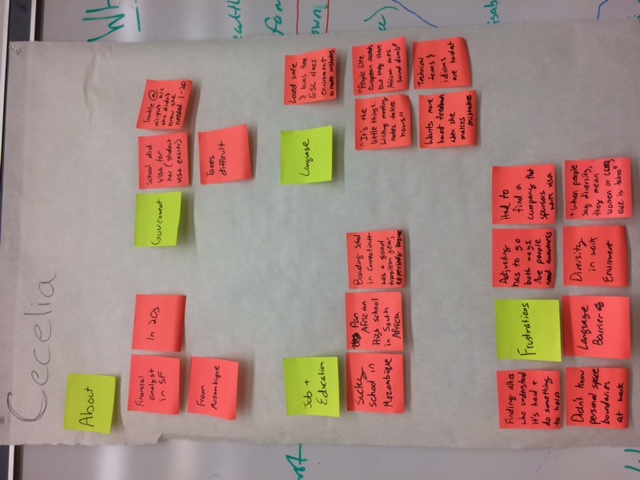 Cecelia
About
Financial
analyst
in SF
In 20s
From
Mozambique
Government
School did
visa for
her (student
visa easier)
Trouble @
airport b/c
she didn't
know she
needed I-20
Taxes
difficult
Job +
Education
School in
Mozambique
Pan
African
High school
in South
Africa
Boarding School
in Connecticut
was a good
transition year,
especially language
Language
Loved safe
& bias free
ESL class
environment
to make mistakes
"It's the
little things.
Writing meeting
notes takes
hours"
"People like
European accents
but they think
African ones
sound dumb"
Wants more
honest feedback
when she
makes
mistakes
Technical
terms &
idioms
are hardest
Finding allies
who understand
it's hard +
do something
to help
Frustrations
Adjusting
has to go
both ways.
people
need awareness
Had to
find a
company that
sponsors
work visa
Didn't know
personal space
boundaries
at work
Language
Barriers
Diversity
in work
Environment
"When people
say diversity,
they mean
women or LGBTQ
race is taboo"
Wh